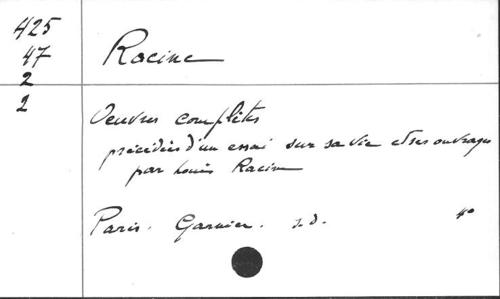 425
47
2
2
Racine
Oeuvres complètes
précédées d'un essai sur sa vie et ses ouvrages
par Louis Racine
Paris. Garnier. s.d. 4°